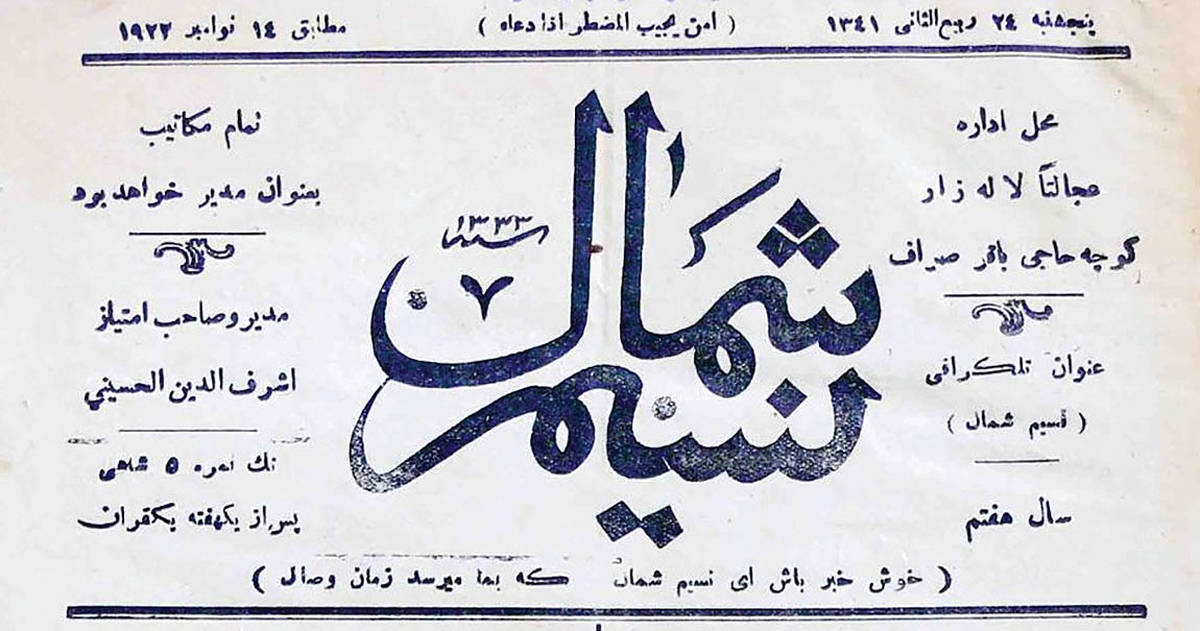 پنجشنبه ۲۴ ربیع‌الثانی ۱۳۴۱ ( امن یجیب المضطر اذا دعاه ) مطابق ۱۴ نوامبر ۱۹۲۲
محل اداره
عجالتاً لاله زار
کوچه حاجی باقر صراف
عنوان تلگرافی
( نسیم شمال )
سال هفتم
نسیم شمال
سنه ۱۳۳۳
۷
تمام مکاتیب
بعنوان مدیر خواهد بود
مدیر و صاحب امتیاز
اشرف الدین الحسیني
تك نمره ۵ شاهی
پس از یکهفته یکقران
( خوش خبر باش ای نسیم شمال که بما میرسد زمان وصال )